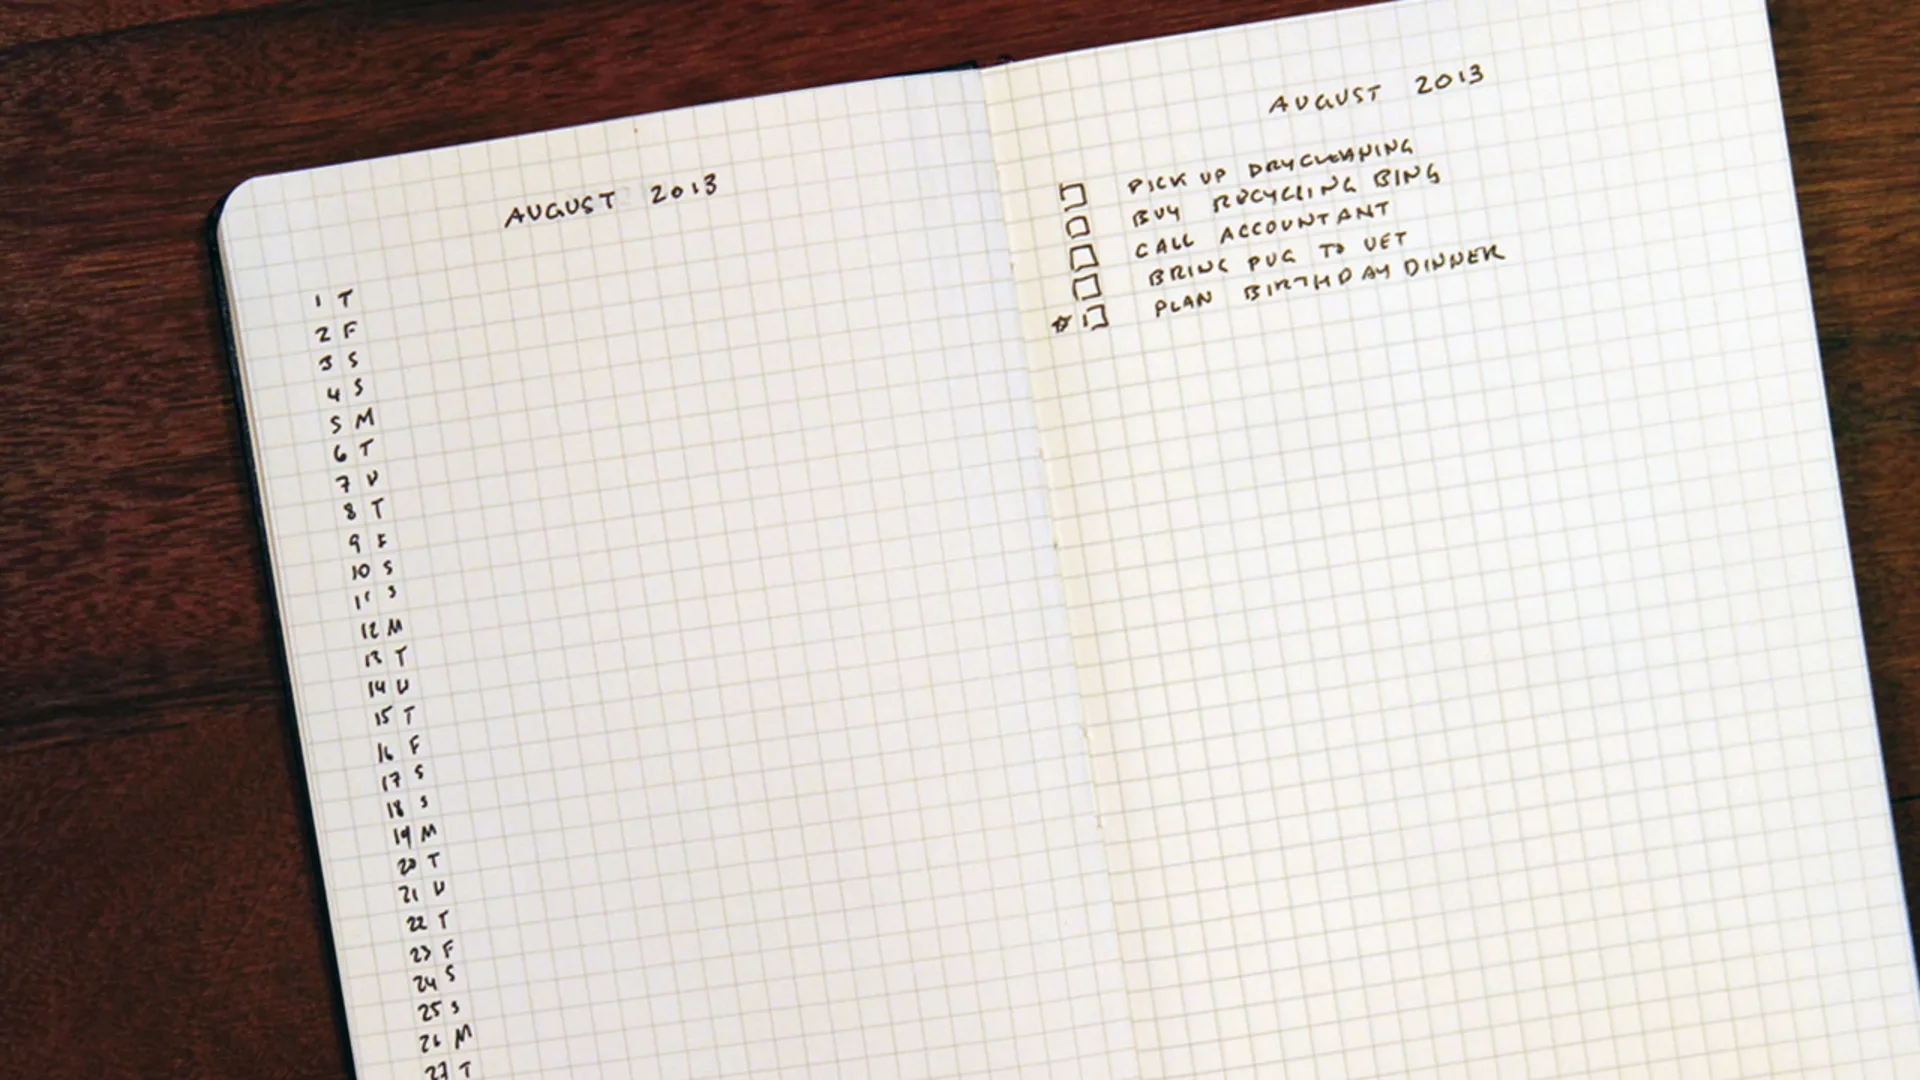 AUGUST 2013
1 T
2 F
3 S
4 S
5 M
6 T
7 W
8 T
9 F
10 S
11 S
12 M
13 T
14 W
15 T
16 F
17 S
18 S
19 M
20 T
21 W
22 T
23 F
24 S
25 S
26 M
27 T
AUGUST 2013
PICK UP DRYCLEANING
BUY RECYCLING BING
CALL ACCOUNTANT
BRING PUG TO VET
PLAN BIRTHDAY DINNER